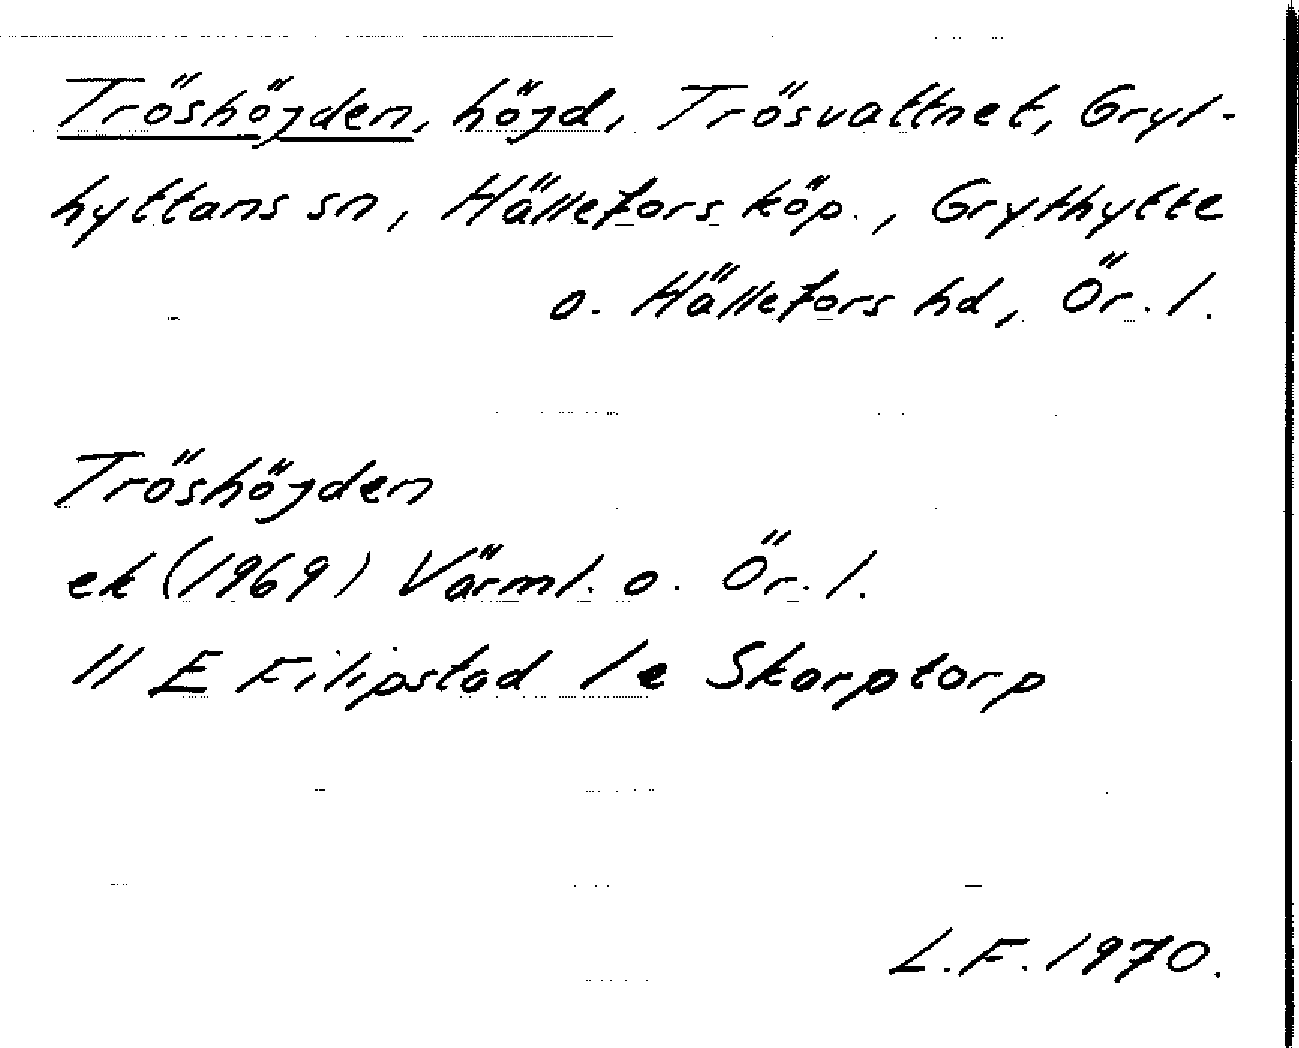 Tröshöjden, höjd, Trösvattnet, Gryt-
hyttans sn, Hällefors köp., Grythytte
o. Hällefors hd, Ör. l.
Tröshöjden
ek (1969) Värml. o. Ör. l.
11 E Filipstad 1 e Skarptorp
L.F. 1970.